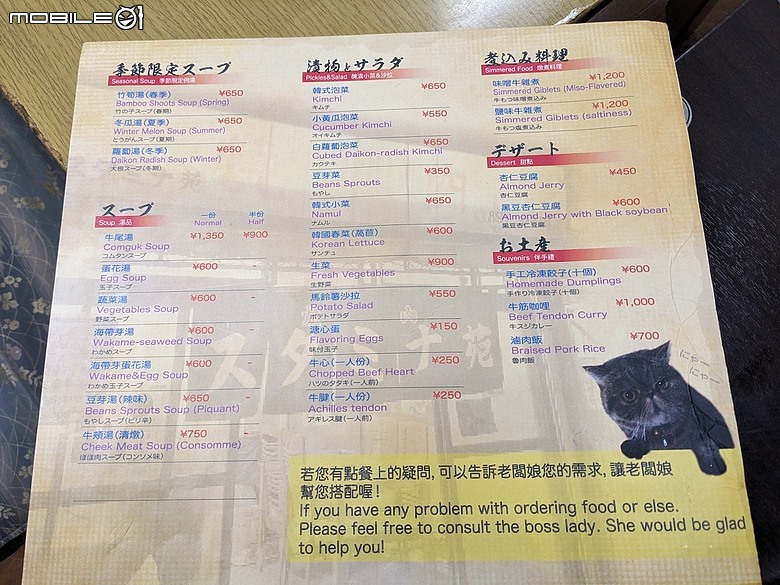 MOBILE01
季節限定スープ
Seasonal Soup 季節限定例湯
竹筍湯(春季) ¥650
Bamboo Shoots Soup (Spring)
竹の子スープ(春期)
冬瓜湯(夏季) ¥650
Winter Melon Soup (Summer)
とうがんスープ(夏期)
蘿蔔湯(冬季) ¥650
Daikon Radish Soup (Winter)
大根スープ(冬期)
スープ
Soup 湯品
一份 半份
Normal Half
牛尾湯 ¥1,350 ¥900
Comguk Soup
コムタンスープ
蛋花湯 ¥600 -
Egg Soup
玉子スープ
蔬菜湯 ¥600 -
Vegetables Soup
野菜スープ
海帶芽湯 ¥600 -
Wakame-seaweed Soup
わかめスープ
海帶芽蛋花湯 ¥600 -
Wakame&Egg Soup
わかめ玉子スープ
豆芽湯(辣味) ¥650 -
Beans Sprouts Soup (Piquant)
もやしスープ(ピリ辛)
牛頰湯(清燉) ¥750 -
Cheek Meat Soup (Consomme)
ほほ肉スープ(コンソメ味)
漬物とサラダ
Pickles&Salad 醃漬小菜&沙拉
韓式泡菜 ¥650
Kimchi
キムチ
小黃瓜泡菜 ¥550
Cucumber Kimchi
オイキムチ
白蘿蔔泡菜 ¥650
Cubed Daikon-radish Kimchi
カクテキ
豆芽菜 ¥350
Beans Sprouts
もやし
韓式小菜 ¥650
Namul
ナムル
韓國春菜(萵苣) ¥600
Korean Lettuce
サンチュ
生菜 ¥900
Fresh Vegetables
生野菜
馬鈴薯沙拉 ¥550
Potato Salad
ポテトサラダ
溏心蛋 ¥150
Flavoring Eggs
味付玉子
牛心(一人份) ¥250
Chopped Beef Heart
ハツのタタキ(一人前)
牛腱(一人份) ¥250
Achilles tendon
アキレス腱(一人前)
煮込み料理
Simmered Food 燉煮料理
味噌牛雜煮 ¥1,200
Simmered Giblets (Miso-Flavored)
牛もつ味噌煮込み
鹽味牛雜煮 ¥1,200
Simmered Giblets (saltiness)
牛もつ塩煮込み
デザート
Dessert 甜點
杏仁豆腐 ¥450
Almond Jerry
杏仁豆腐
黑豆杏仁豆腐 ¥600
Almond Jerry with Black soybean
黒豆杏仁豆腐
お土産
Souvenirs 伴手禮
手工冷凍餃子(十個) ¥600
Homemade Dumplings
手作り冷凍餃子(十個)
牛筋咖哩 ¥1,000
Beef Tendon Curry
牛スジカレー
滷肉飯 ¥700
Braised Pork Rice
魯肉飯
にゃー
にゃー
若您有點餐上的疑問, 可以告訴老闆娘您的需求, 讓老闆娘
幫您搭配喔!
If you have any problem with ordering food or else.
Please feel free to consult the boss lady. She would be glad
to help you!